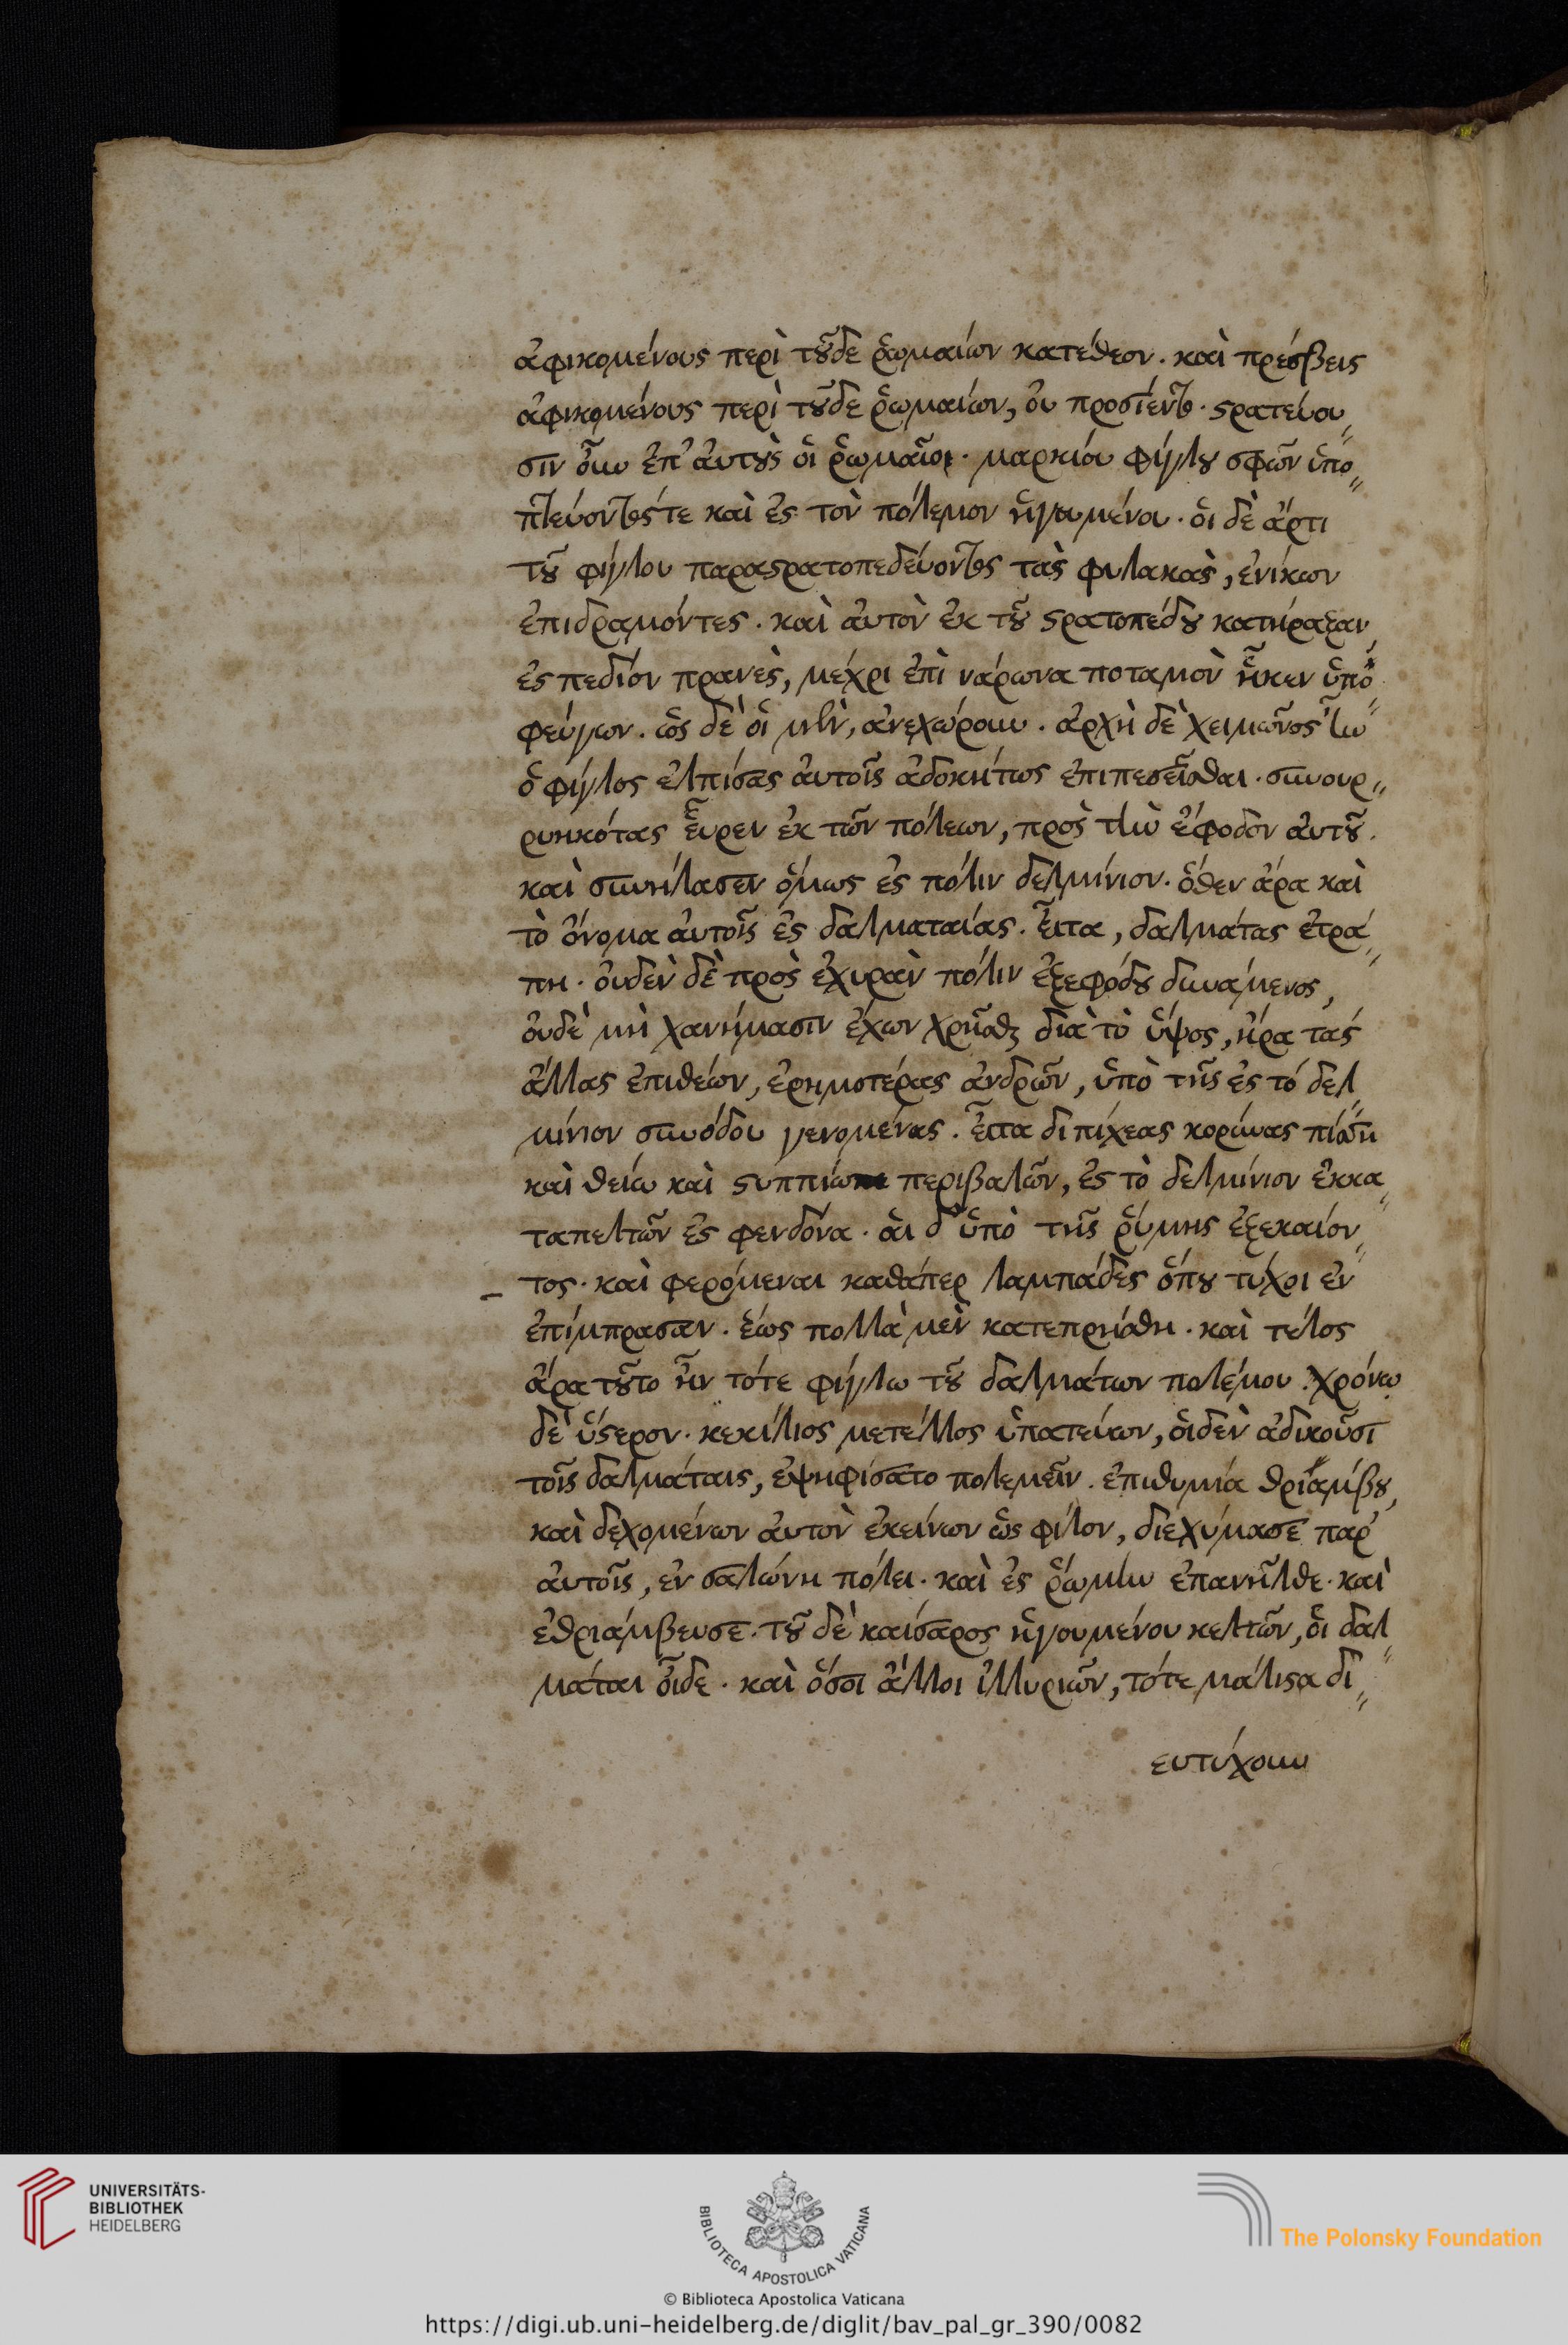 ἀφικομένους περὶ τοῦδε ῥωμαίων κατέθεον. καὶ πρέσβεις
ἀφικομένους περὶ τοῦδε ῥωμαίων, οὐ προσίεντο. στρατεύου
σιν οὖν ἐπ' αὐτοὺς οἱ ῥωμαῖοι. μαρκίου φίγλου σφῶν ὑπο
πτεύοντός τε καὶ ἐς τὸν πόλεμον ἡγουμένου. οἱ δὲ ἄρτι
τοῦ φίγλου παραστρατοπεδεύοντος τὰς φυλακὰς, ἐνίκων
ἐπιδραμόντες. καὶ αὐτὸν ἐκ τοῦ στρατοπέδου κατήραξαν
ἐς πεδίον πρανὲς, μέχρι ἐπὶ νάρωνα ποταμὸν ἧκεν ὑπο
φεύγων. ὡς δὲ οἱ μὲν, ἀνεχώρουν. ἀρχὴ δὲ χειμῶνος ἦν
ὁ φίγλος ἐλπίσας αὐτοῖς ἀδοκήτως ἐπιπεσεῖσθαι. συνουρ
ρυηκότας εὗρεν ἐκ τῶν πόλεων, πρὸς τὴν ἔφοδον αὐτοῦ.
καὶ συνήλασεν ὅμως ἐς πόλιν δελμίνιον. ὅθεν ἄρα καὶ
τὸ ὄνομα αὐτοῖς ἐς δαλματαίας. εἶτα, δαλμάτας ἐτρά
πη. οὐδὲν δὲ πρὸς ἐχυρὰν πόλιν ἐξεφόδου δυνάμενος,
οὐδὲ μὴ χανήμασιν ἔχων χρῆσθαι διὰ τὸ ὕψος, ᾕρει τὰς
ἄλλας ἐπιθεὼν, ἐρημοτέρας ἀνδρῶν, ὑπὸ τῆς ἐς τὸ δελ
μίνιον συνόδου γενομένας. εἶτα διπήχεας κορύνας πίσση
καὶ θείω καὶ στυππίω περιβαλῶν, ἐς τὸ δελμίνιον ἐκκα
ταπελτῶν ἐς φενδόνα. αἱ δ' ὑπὸ τῆς ῥύμης ἐξεκαίον
τος. καὶ φερόμεναι καθάπερ λαμπάδες ὅπου τύχοι ἐν
ἐπίμπρασαν. ἕως πολλὰ μὲν κατεπρήσθη. καὶ τέλος
ἄρα τοῦτο ἦν τότε φίγλω τοῦ δαλμάτων πολέμου. χρόνω
δὲ ὕστερον. κεκίλιος μετέλλος ὑπατεύων, οἱδὲν ἀδικοῦσι
τοῖς δαλμάταις, ἐψηφίσατο πολεμεῖν. ἐπιθυμία θριάμβου,
καὶ δεχομένων αὐτὸν ἐκείνων ὡς φίλον, διεχύμασε παρ'
αὐτοῖς, ἐν σαλώνη πόλει. καὶ ἐς ῥώμην ἐπανῆλθε. καὶ
ἐθριάμβευσε. τοῦ δὲ καίσαρος ἡγουμένου κελτῶν, οἱ δαλ
μάται οἷδε. καὶ ὅσοι ἄλλοι ἰλλυριῶν, τότε μάλιστα δι
ευτύχουν
UNIVERSITÄTS-
BIBLIOTHEK
HEIDELBERG
BIBLIOTECA APOSTOLICA VATICANA
The Polonsky Foundation
© Biblioteca Apostolica Vaticana
https://digi.ub.uni-heidelberg.de/diglit/bav_pal_gr_390/0082